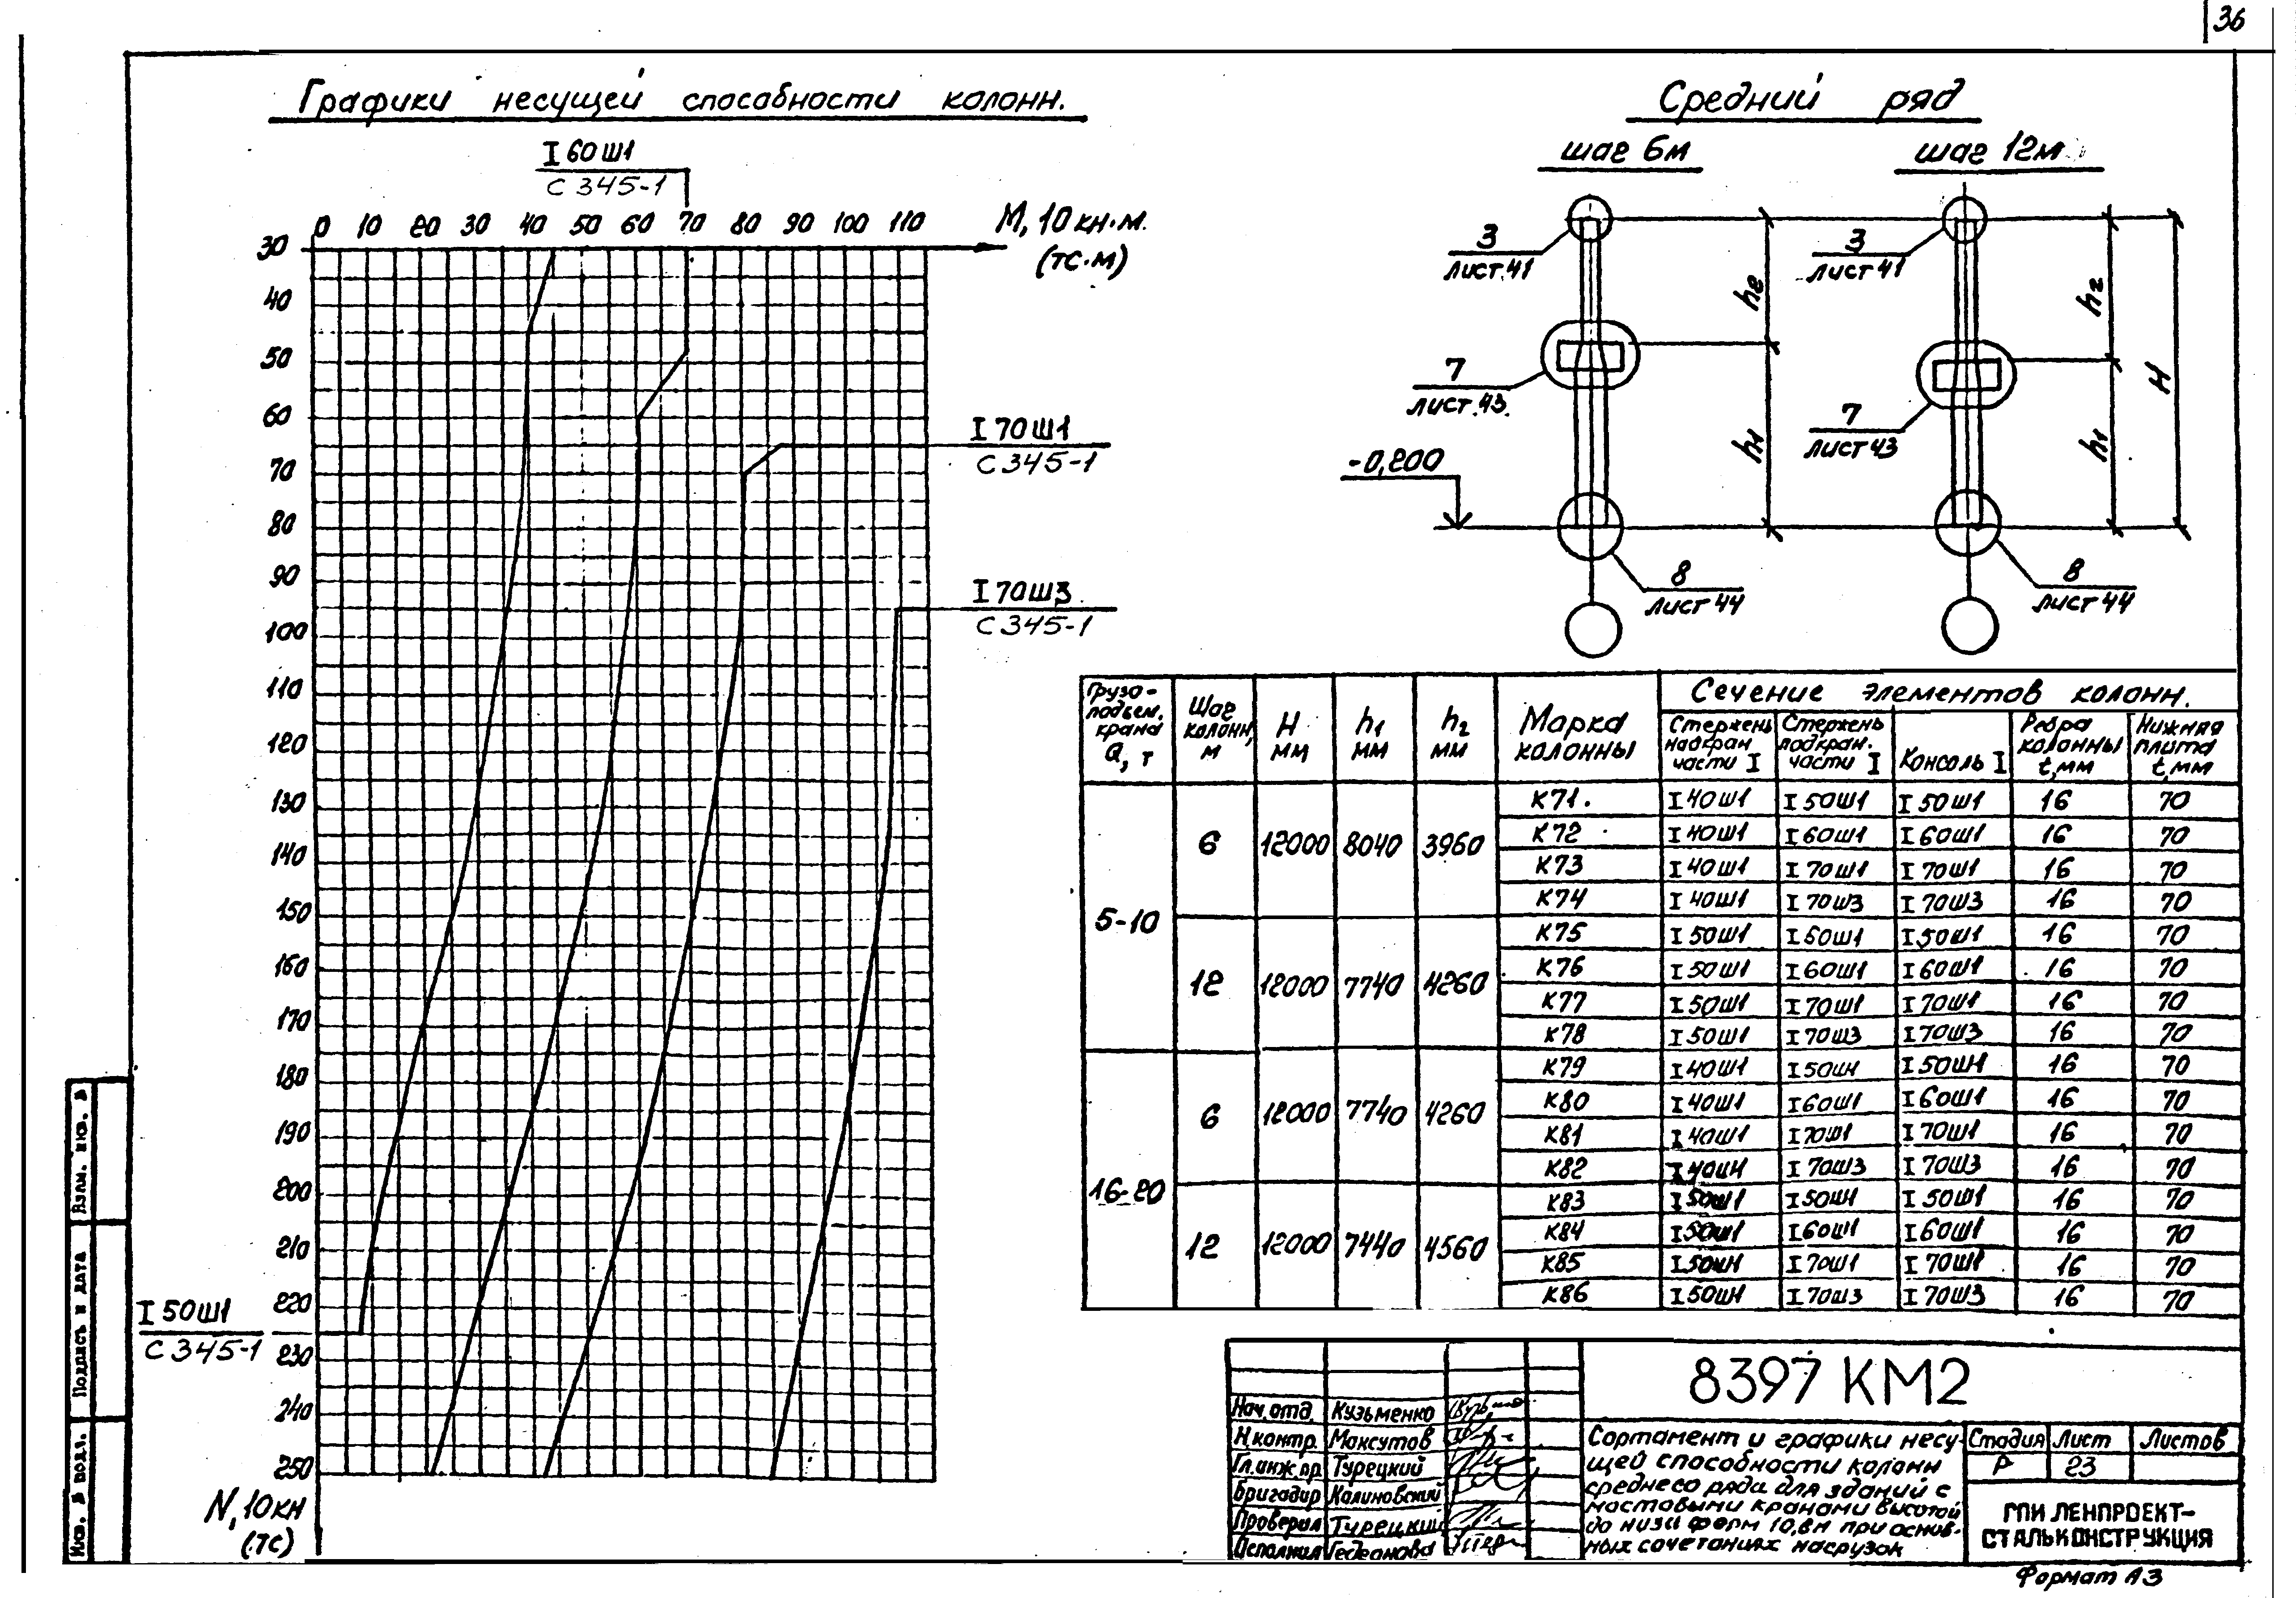 36
Графики несущей способности колонн.
I 60Ш1
С 345-1
0 10 20 30 40 50 60 70 80 90 100 110
М, 10 кн·м.
(тс·м)
30
40
50
60
70
80
90
100
110
120
130
140
150
160
170
180
190
200
210
220
230
240
250
N, 10кн
(тс)
I 70Ш1
С 345-1
I 70Ш3
С 345-1
I 50Ш1
С 345-1
Средний ряд
шаг 6м
шаг 12м
3
лист 41
3
лист 41
7
лист 43
7
лист 43
-0,200
8
лист 44
8
лист 44
h2
h1
h2
h1
H
Грузоподъем. крана Q, т | Шаг колонн, м | H мм | h1 мм | h2 мм | Марка колонны | Сечение элементов колонн.
Стержень надкран части I | Стержень подкран. части I | Консоль I | Ребра колонны t, мм | Нижняя плита t, мм
5-10 | 6 | 12000 | 8040 | 3960
К71. I 40Ш1 I 50Ш1 I 50Ш1 16 70
К72 I 40Ш1 I 60Ш1 I 60Ш1 16 70
К73 I 40Ш1 I 70Ш1 I 70Ш1 16 70
К74 I 40Ш1 I 70Ш3 I 70Ш3 16 70
12 | 12000 | 7740 | 4260
К75 I 50Ш1 I 50Ш1 I 50Ш1 16 70
К76 I 50Ш1 I 60Ш1 I 60Ш1 16 70
К77 I 50Ш1 I 70Ш1 I 70Ш1 16 70
К78 I 50Ш1 I 70Ш3 I 70Ш3 16 70
16-20 | 6 | 12000 | 7740 | 4260
К79 I 40Ш1 I 50Ш1 I 50Ш1 16 70
К80 I 40Ш1 I 60Ш1 I 60Ш1 16 70
К81 I 40Ш1 I 70Ш1 I 70Ш1 16 70
К82 I 40Ш1 I 70Ш3 I 70Ш3 16 70
12 | 12000 | 7440 | 4560
К83 I 50Ш1 I 50Ш1 I 50Ш1 16 70
К84 I 50Ш1 I 60Ш1 I 60Ш1 16 70
К85 I 50Ш1 I 70Ш1 I 70Ш1 16 70
К86 I 50Ш1 I 70Ш3 I 70Ш3 16 70
8397 КМ2
Нач. отд. Кузьменко
Н контр. Максутов
Гл.инж.пр. Турецкий
Бригадир Калиновский
Проверил Турецкий
Исполнил Гедеонова
Сортамент и графики несу-
щей способности колонн
среднего ряда для зданий с
мостовыми кранами высотой
до низа ферм 10,8м при основ-
ных сочетаниях нагрузок
Стадия Лист Листов
Р 23
ГПИ ЛЕНПРОЕКТ-
СТАЛЬКОНСТРУКЦИЯ
Формат А3
Взам. инв. №
Подпись и дата
Инв. № подл.